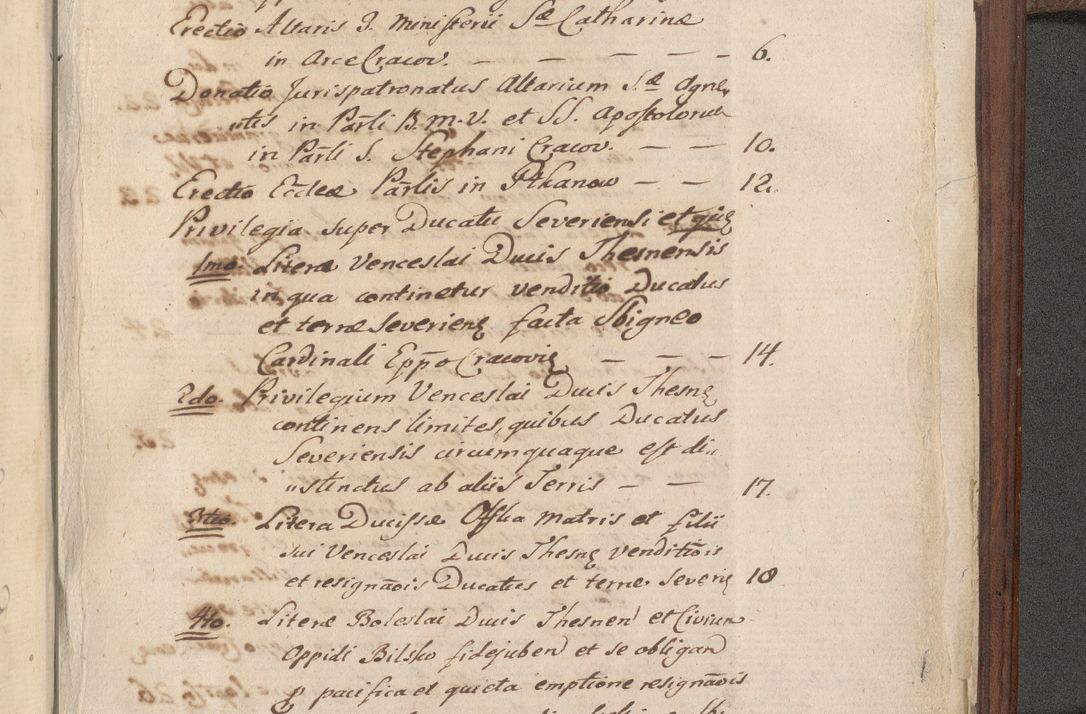 Erectio Altaris 3. Ministerii Sæ Catharinæ
in Arce Cracov. — — — — 6.
Donatio Jurispatronatus Altarium S.æ Agne,,
,,tis in Parłi B. M. V. et SS. Apostolorum
in Parłi S. Stephani Cracov. — — 10.
Erectio Eccleæ Parłis in Pthanow — — 12.
Privilegia super Ducatu Severiensi et qui
1mo. Literæ Venceslai Ducis Thesnensis
in qua continetur venditio Ducatus
et terræ Severien facta Sbigneo
Cardinali Eppo Cracovi — — — 14.
2do. Privilegium Venceslai Ducis Thesn
continens limites, quibus Ducatus
Severiensis circumquaque est di,,
,,stinctus ab aliis Terris — — 17.
3tio. Litera Ducissæ Offka Matris et filii
sui Venceslai Ducis Thesn venditiois
et resignaois Ducatus et terræ Severi 18
4to. Literæ Boleslai Ducis Thesnen et Civium
Oppidi Bilsko fidejuben et se obligan
p pacifica et quieta emptione resignaois